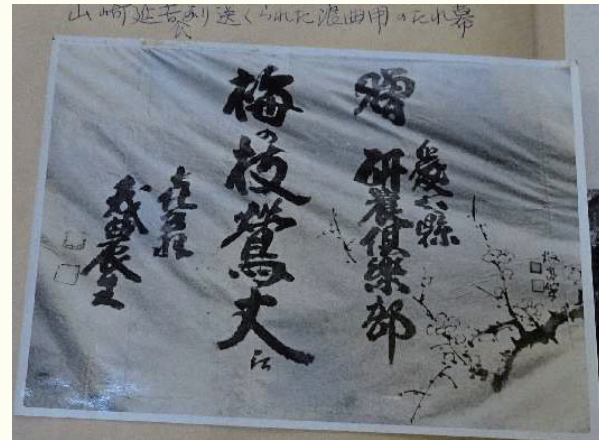 山崎延吉より送くられた浪曲用のたれ幕
贈
愛知縣
研農倶楽部
梅の枝鶯丈江
我農生